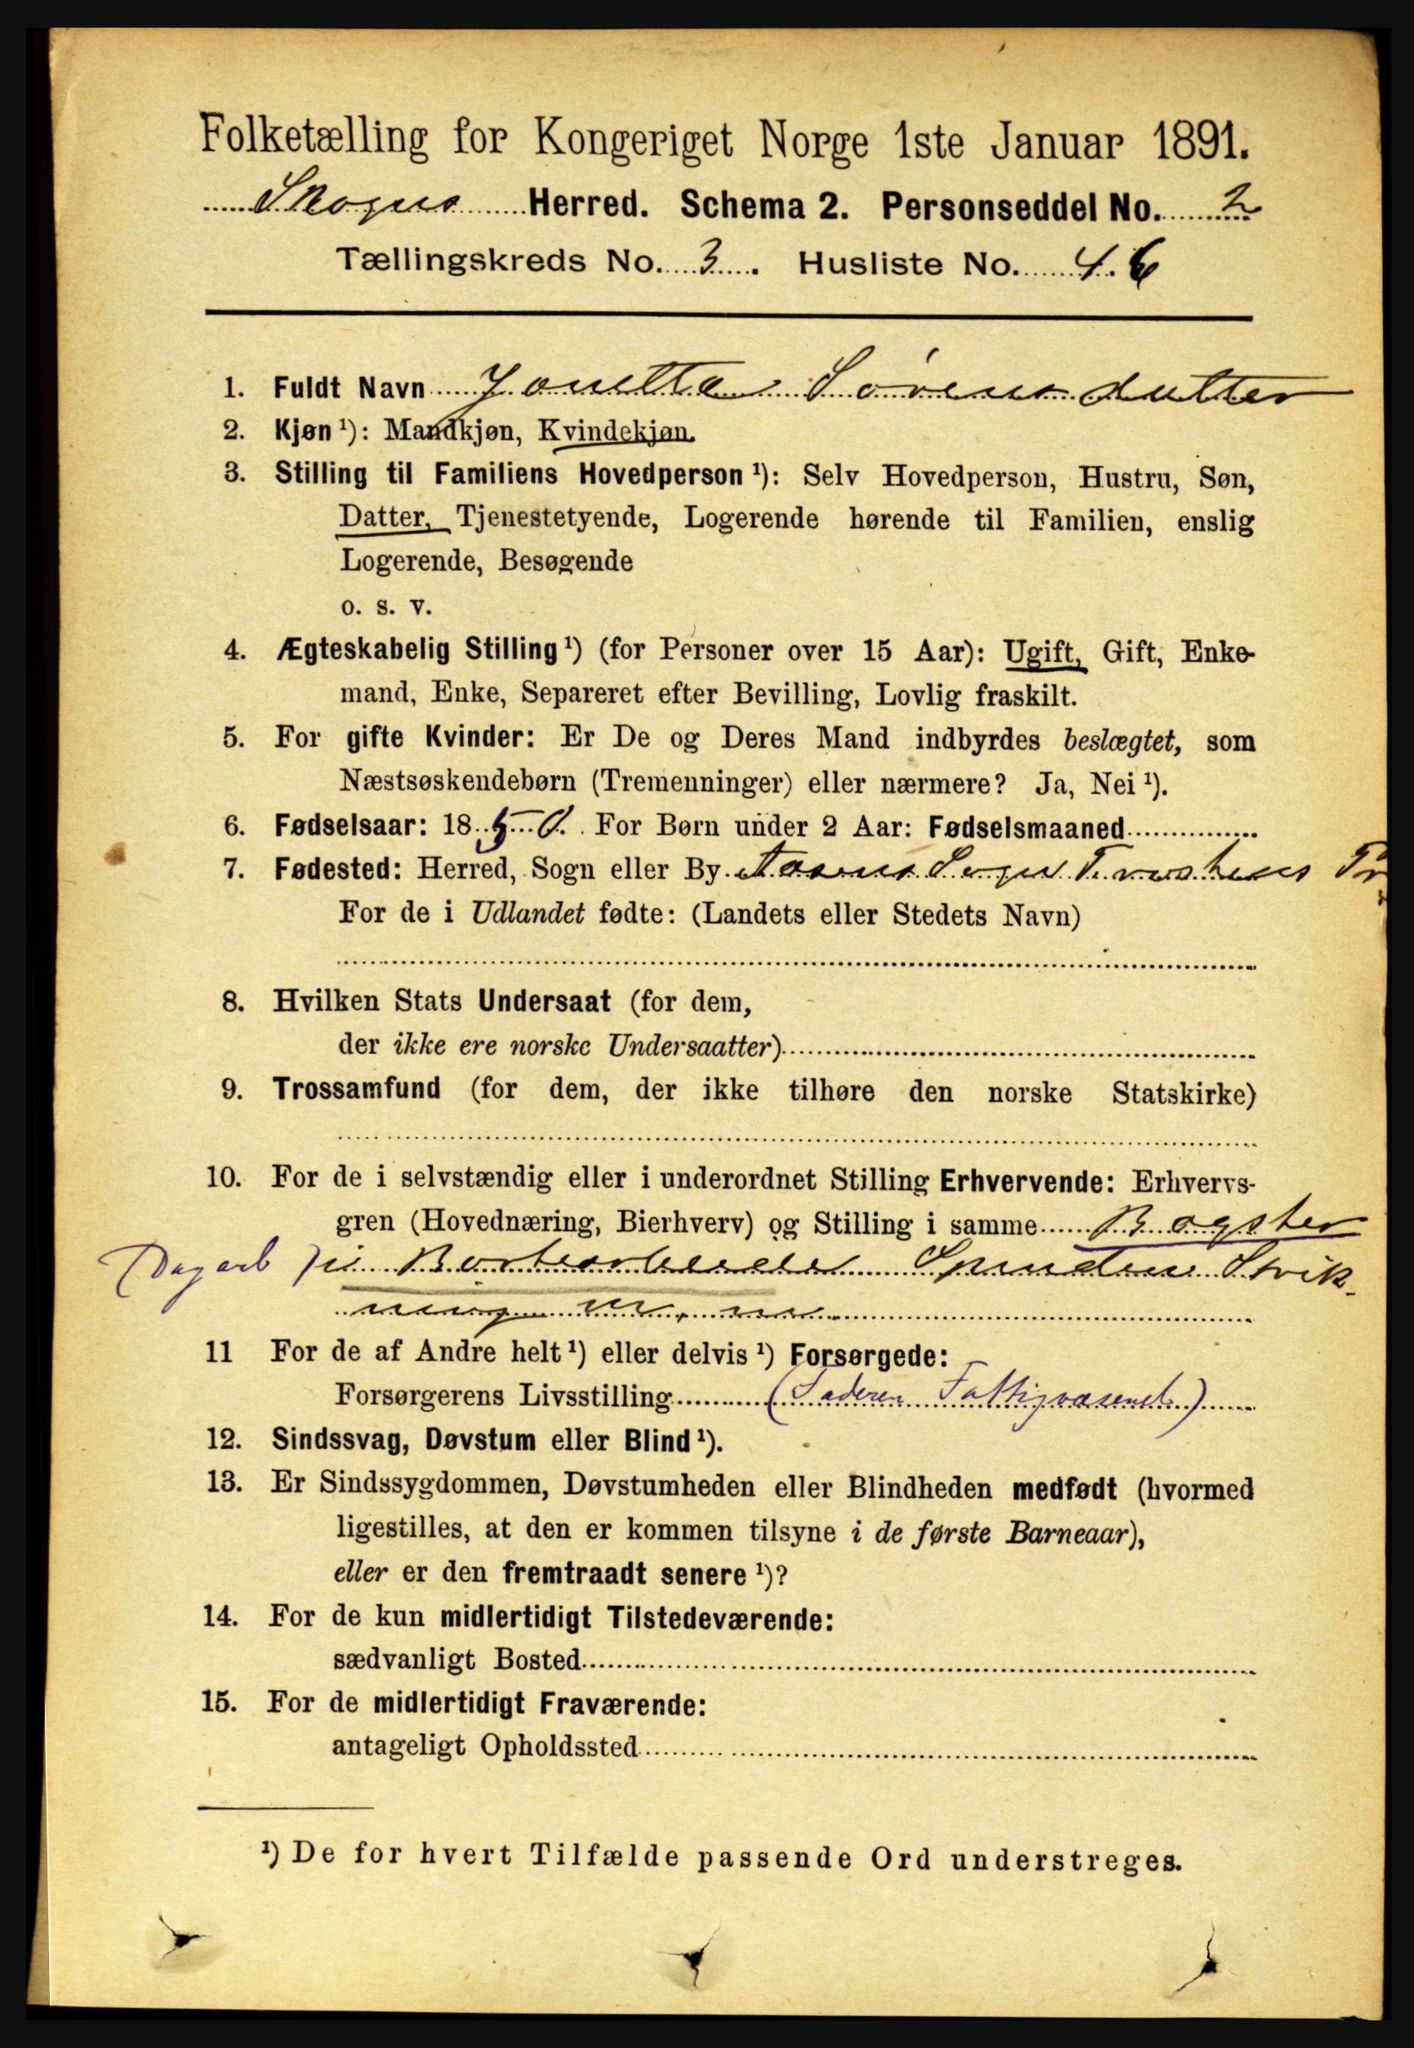 Folketælling for Kongeriget Norge 1ste Januar 1891.
Skogns Herred. Schema 2. Personseddel No. 2
Tællingskreds No. 3. Husliste No. 46
1. Fuldt Navn Jonetta Sørensdatter
2. Kjøn ¹): Mandkjøn, Kvindekjøn.
3. Stilling til Familiens Hovedperson ¹): Selv Hovedperson, Hustru, Søn,
Datter, Tjenestetyende, Logerende hørende til Familien, enslig
Logerende, Besøgende
o. s. v.
4. Ægteskabelig Stilling ¹) (for Personer over 15 Aar): Ugift, Gift, Enke-
mand, Enke, Separeret efter Bevilling, Lovlig fraskilt.
5. For gifte Kvinder: Er De og Deres Mand indbyrdes beslægtet, som
Næstsøskendebørn (Tremenninger) eller nærmere? Ja, Nei ¹).
6. Fødselsaar: 1850. For Børn under 2 Aar: Fødselsmaaned
7. Fødested: Herred, Sogn eller By Aasens Sogn
For de i Udlandet fødte: (Landets eller Stedets Navn)
8. Hvilken Stats Undersaat (for dem,
der ikke ere norske Undersaatter)
9. Trossamfund (for dem, der ikke tilhøre den norske Statskirke)
10. For de i selvstændig eller i underordnet Stilling Erhvervende: Erhvervs-
gren (Hovednæring, Bierhverv) og Stilling i samme Bagster
(Dagarb) Strik-
ning m. m.
11 For de af Andre helt ¹) eller delvis ¹) Forsørgede:
Forsørgerens Livsstilling (Faderen Fattigvæsenet)
12. Sindssvag, Døvstum eller Blind ¹).
13. Er Sindssygdommen, Døvstumheden eller Blindheden medfødt (hvormed
ligestilles, at den er kommen tilsyne i de første Barneaar),
eller er den fremtraadt senere ¹)?
14. For de kun midlertidigt Tilstedeværende:
sædvanligt Bosted
15. For de midlertidigt Fraværende:
antageligt Opholdssted
¹) De for hvert Tilfælde passende Ord understreges.